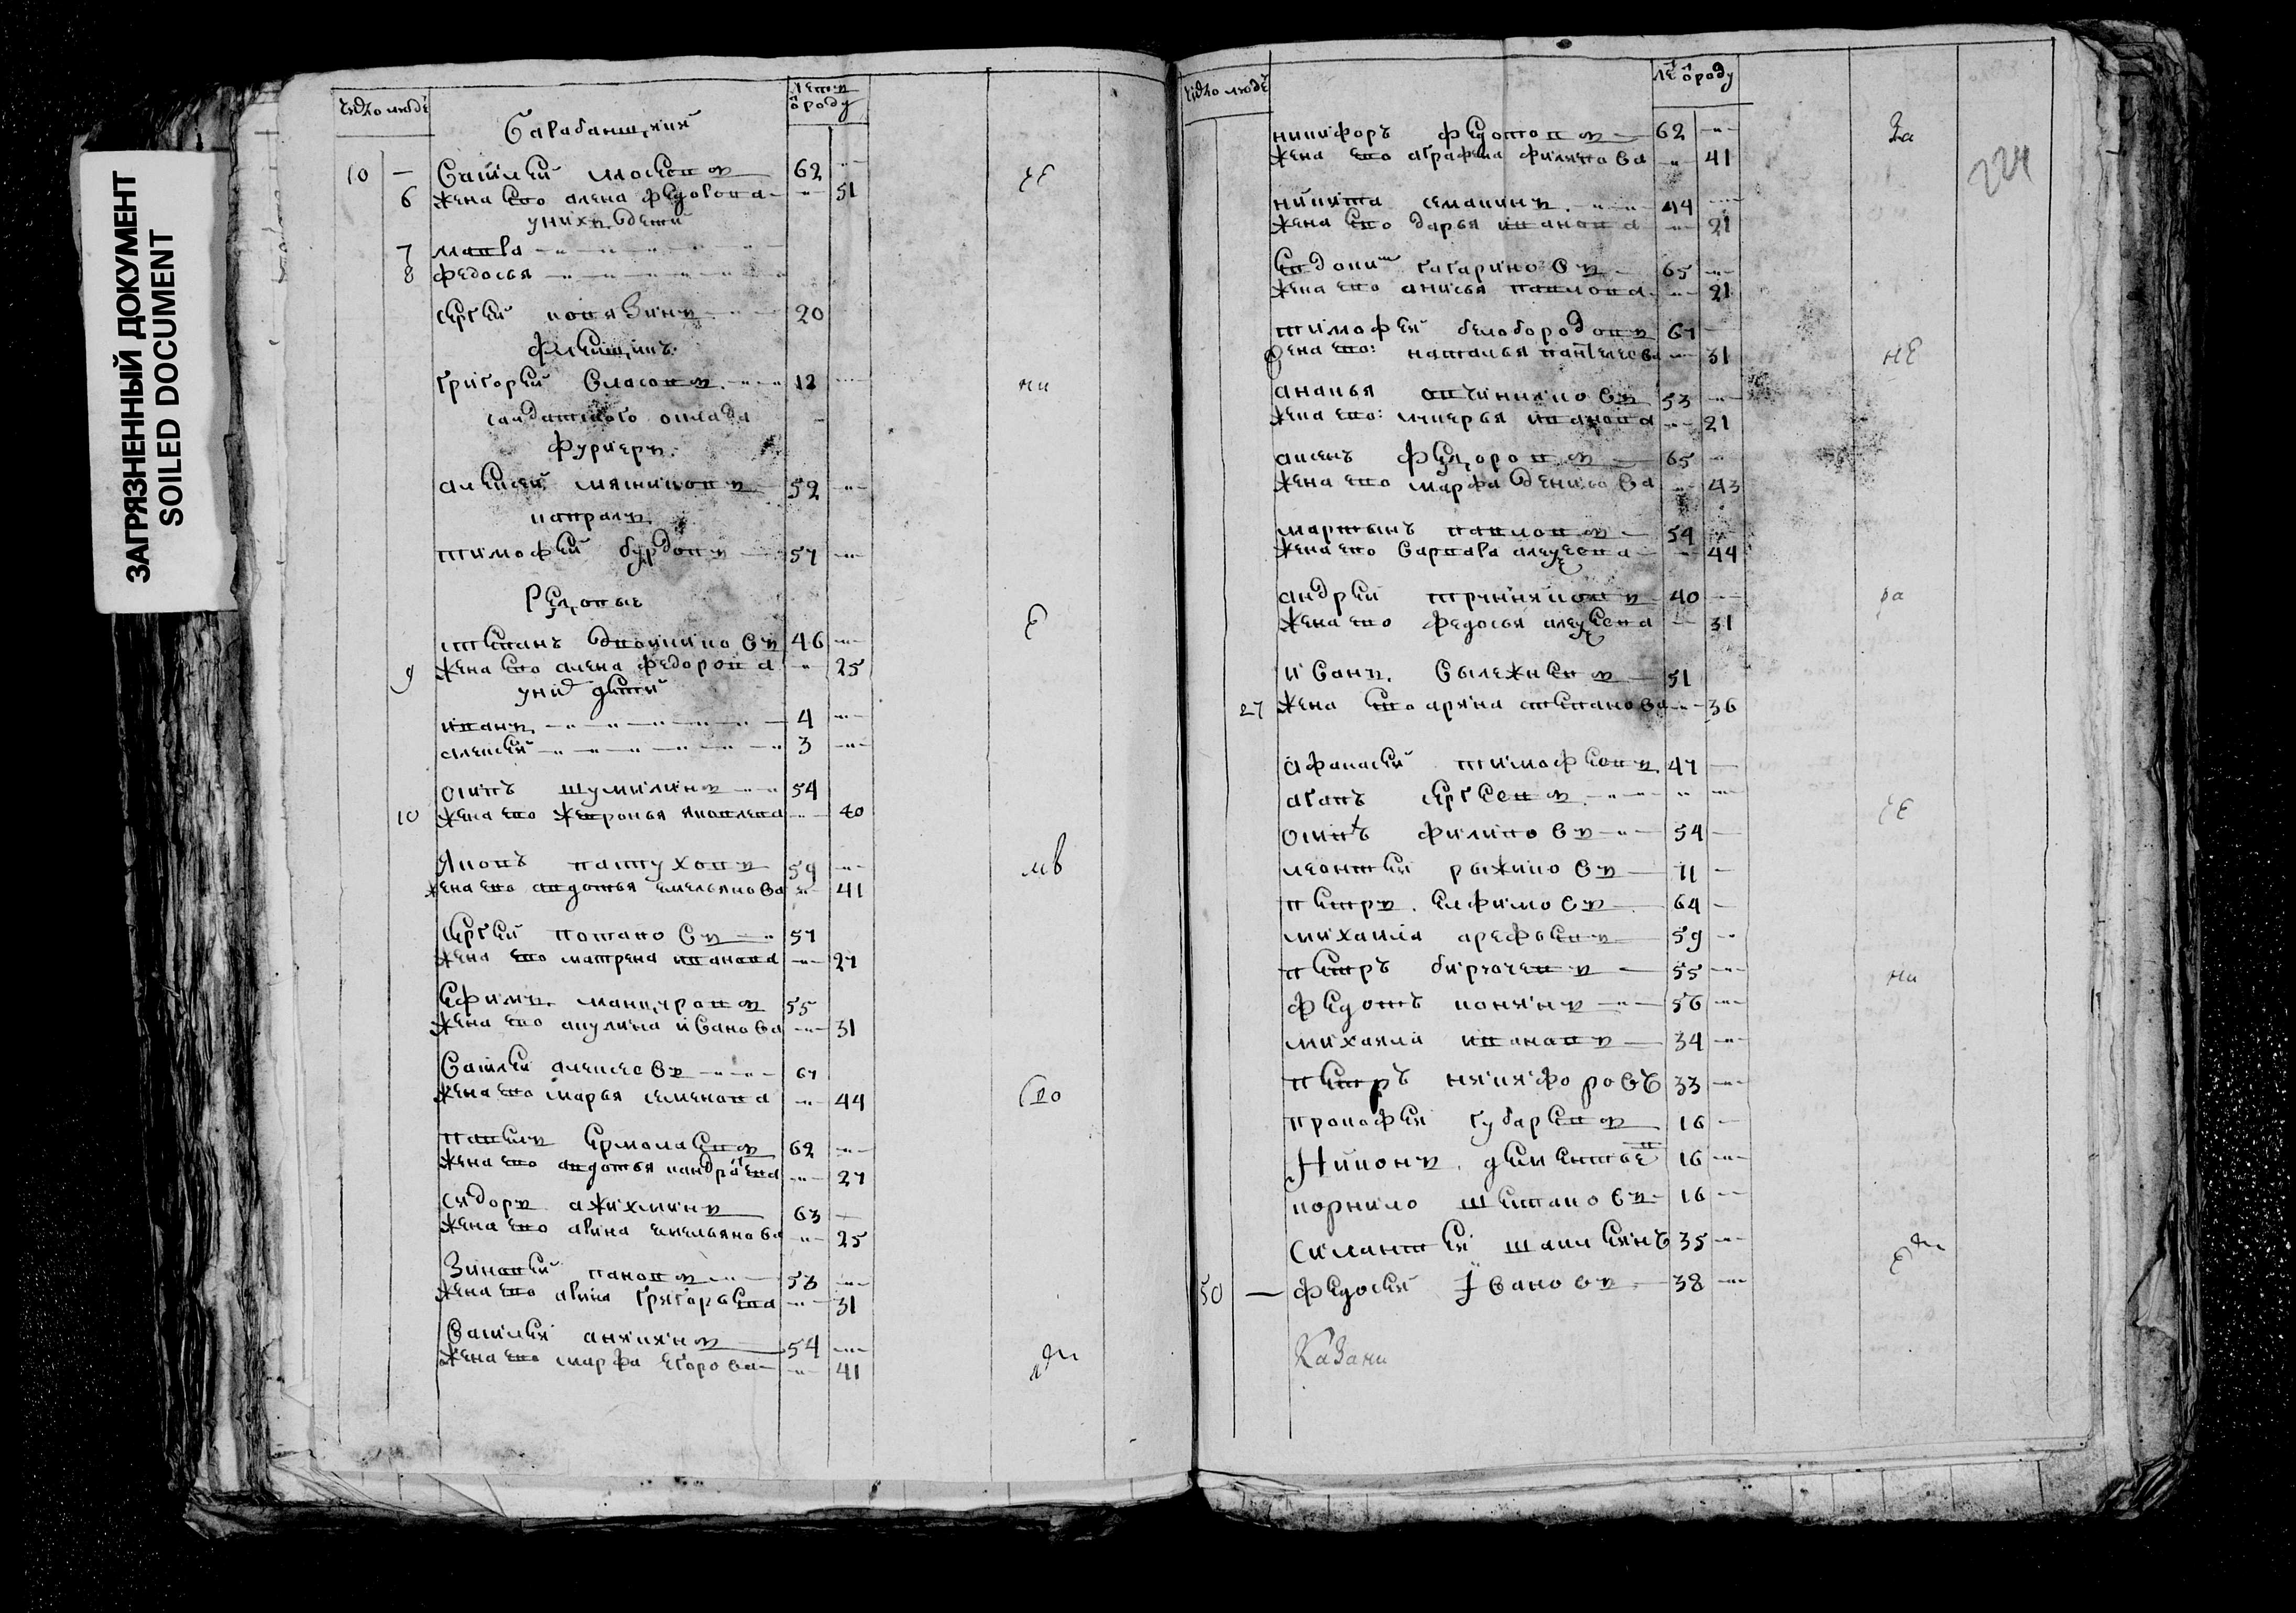 ЗАГРЯЗНЕННЫЙ ДОКУМЕНТ
SOILED DOCUMENT
число людей
лет от роду
барабанщики
10 — василей 62
6 жена ево алена федорова 51
у них дети
7 мавра
8 федосья
сергей 20
флейщик
григорей власовъ 12
салдатского оклада
фуриеръ
алексей мяснико въ 52
капралъ
тимофей бурдовъ 57
Рядовые
степанъ двойниковъ 46
9 жена ево алена федорова 25
у них детей
иванъ 4
алексей 3
осипъ шумилинъ 54
10 жена ево яковлева 40
яковъ пастуховъ 59
жена ево авдотья емельянова 41
сергей потаповъ 57
жена ево матрена иванова 27
ефимъ 55
жена ево акулина иванова 31
василей алексеевъ 67
жена ево марья семенова 44
павелъ ермолаевъ 62
жена ево авдотья кондратева 27
сидоръ 63
жена ево арина емельянова 25
зиновей пановъ 53
жена ево арина григорьева 31
василей аникинъ 54
жена ево марфа егорова 41
число людей
лет от роду
за
224
никифоръ федотовъ 62
жена ево аграфена филипова 41
никита семакинъ 44
жена ево дарья иванова 21
евдоким гагариновъ 65
жена ево анисья павлова 21
тимофей белобородовъ 67
жена ево: наталья пантелеева 31
не
ананья овчиниковъ 53
жена ево: лукерья иванова 21
аксенъ федоровъ 65
жена ево марфа денисова 43
мартынъ павловъ 54
жена ево варвара алексеева 44
андрей 40
ра
жена ево федосья алексеева 31
иванъ 51
27 жена ево арина степанова 36
афанасей тимофеевъ 47
агапъ сергеевъ
осипъ филиповъ 54
леонтей рыжиковъ 71
петръ елфимовъ 64
михаила арефьевъ 59
петръ 55
ни
федотъ конинъ 56
михаила ивановъ 34
петръ никифоровъ 33
прокофей губаревъ 16
Никонъ дементьевъ 16
корнило шестаковъ 16
силантей 35
50 — федосей ивановъ 38
Казани